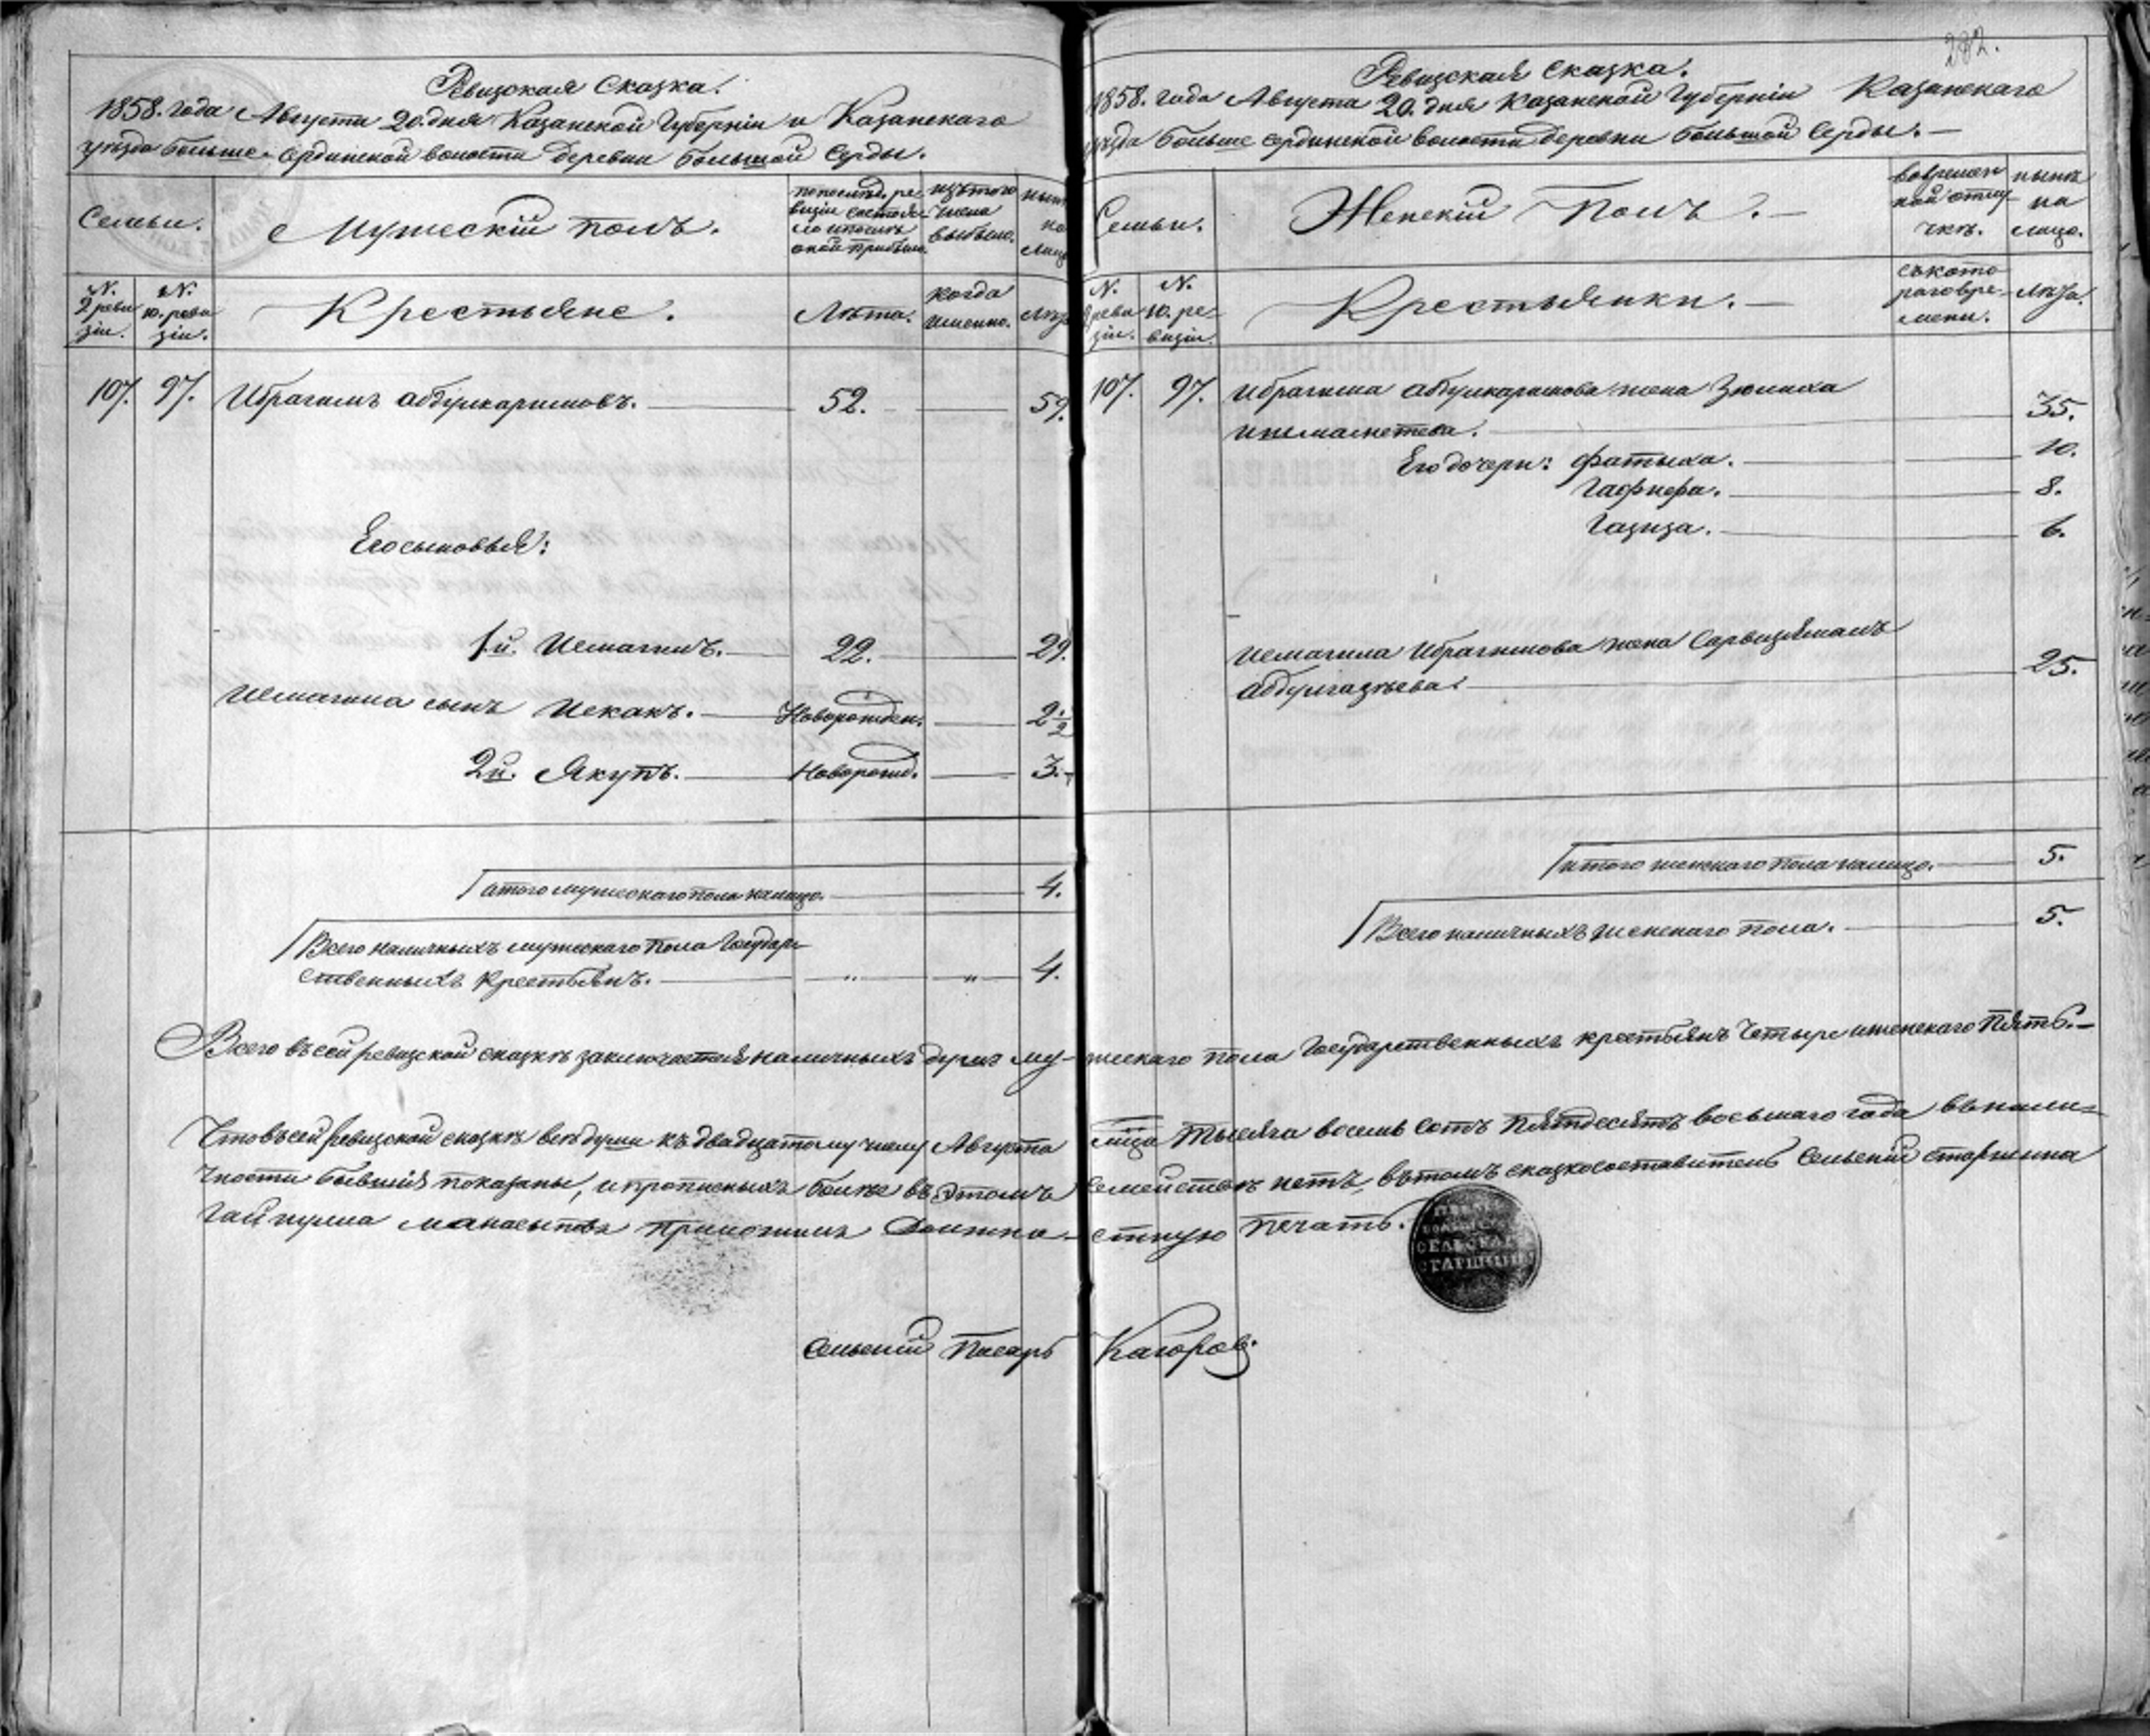 Ревизская Сказка.
1858. года Августа 20. дня Казанской Губернiи и Казанскаго
уѣзда больше-Сердинской волости деревни большой Серды.
Семьи.
Мужескiй полъ.
по послѣдн. ре-
визiи состоя-
ло и послѣ
оной прибыло
изъ того
числа
выбыло.
нынѣ
на
лицо
N. 9 реви
зiи.
N. 10. реви
зiи.
Крестьяне.
Лѣта.
когда
именно.
Лѣта
107. 97. Ибрагимъ абдулкаримовъ. 52. 59.
Его сыновья:
1.й. Исмагилъ. 22. 29.
Исмагила сынъ Исхакъ. Новорожден. 2 1/2
2й. Якупъ. Новорожд. 3.
итого мужескаго пола налицо. 4.
Всего наличныхъ мужескаго пола Государ-
ственныхъ крестьянъ. " " 4.
282.
Ревизская сказка.
1858. года Августа 20. дня Казанской Губернiи Казанскаго
уѣзда больше сердинской волости деревни большой Серды.
Семьи.
Женскiй Полъ.
во времен
ной отлу-
чкѣ.
нынѣ
на
лицо.
N. 9 реви
зiи.
N. 10. ре-
визiи.
Крестьянки.
съ кото
раго вре-
мени.
Лѣта.
107. 97. Ибрагима абдулкаримова жена Зюлиха
35.
Его дочери: Фатыха. 10.
8.
Газиза. 6.
Исмагила Ибрагимова жена Сарвизямалъ
25.
итого женскаго пола налицо. 5.
Всего наличныхъ женскаго пола. 5.
Всего въ сей ревизской сказкѣ заключается наличныхъ душъ му-жескаго пола Государственныхъ крестьянъ четыре и женскаго пять.
Что въ сей ревизской сказкѣ всѣ души къ двадцатому числу Августа мца тысяча восемь сотъ пятдесятъ восьмаго года въ нали-
чности бывшiя показаны, и прописныхъ болѣе въ этомъ семействѣ нетъ, въ томъ сказкосоставитель Сельскiй старшина
приложилъ Должно-стную печать.
СЕЛЬСКАГО
СТАРШИНЫ
Сельскiй Писарь